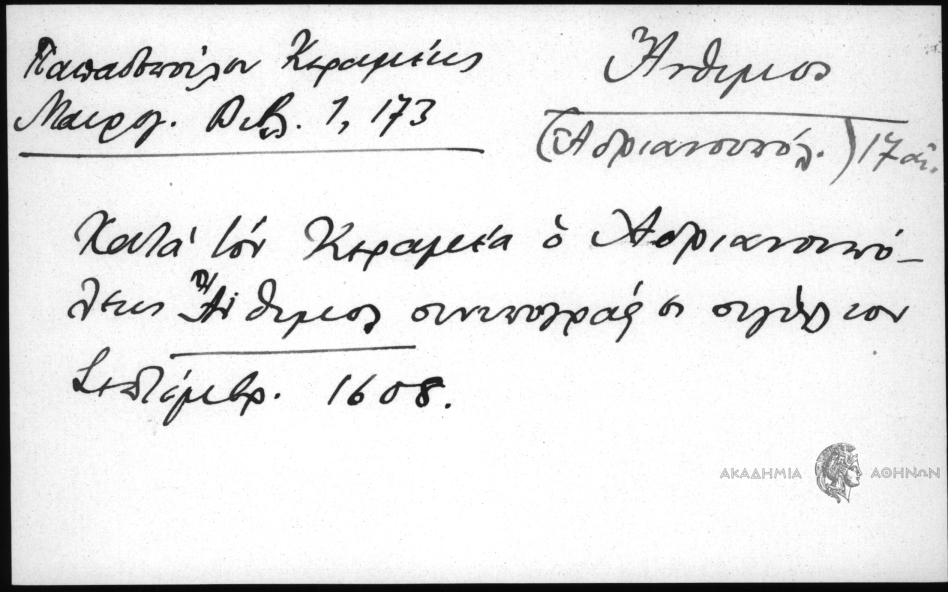 Παπαδοπούλου Κεραμέως
Μαυρογ. Βιβλ. 1, 173
Ἄνθιμος
(Ἀδριανουπόλ.) 17 αἰ.
Κατὰ τὸν Κεραμέα ὁ Ἀδριανουπό-
λεως Ἄνθιμος συνυπογράφει σιγίλλιον
Σεπτέμβρ. 1608.
ΑΚΑΔΗΜΙΑ ΑΘΗΝΩΝ